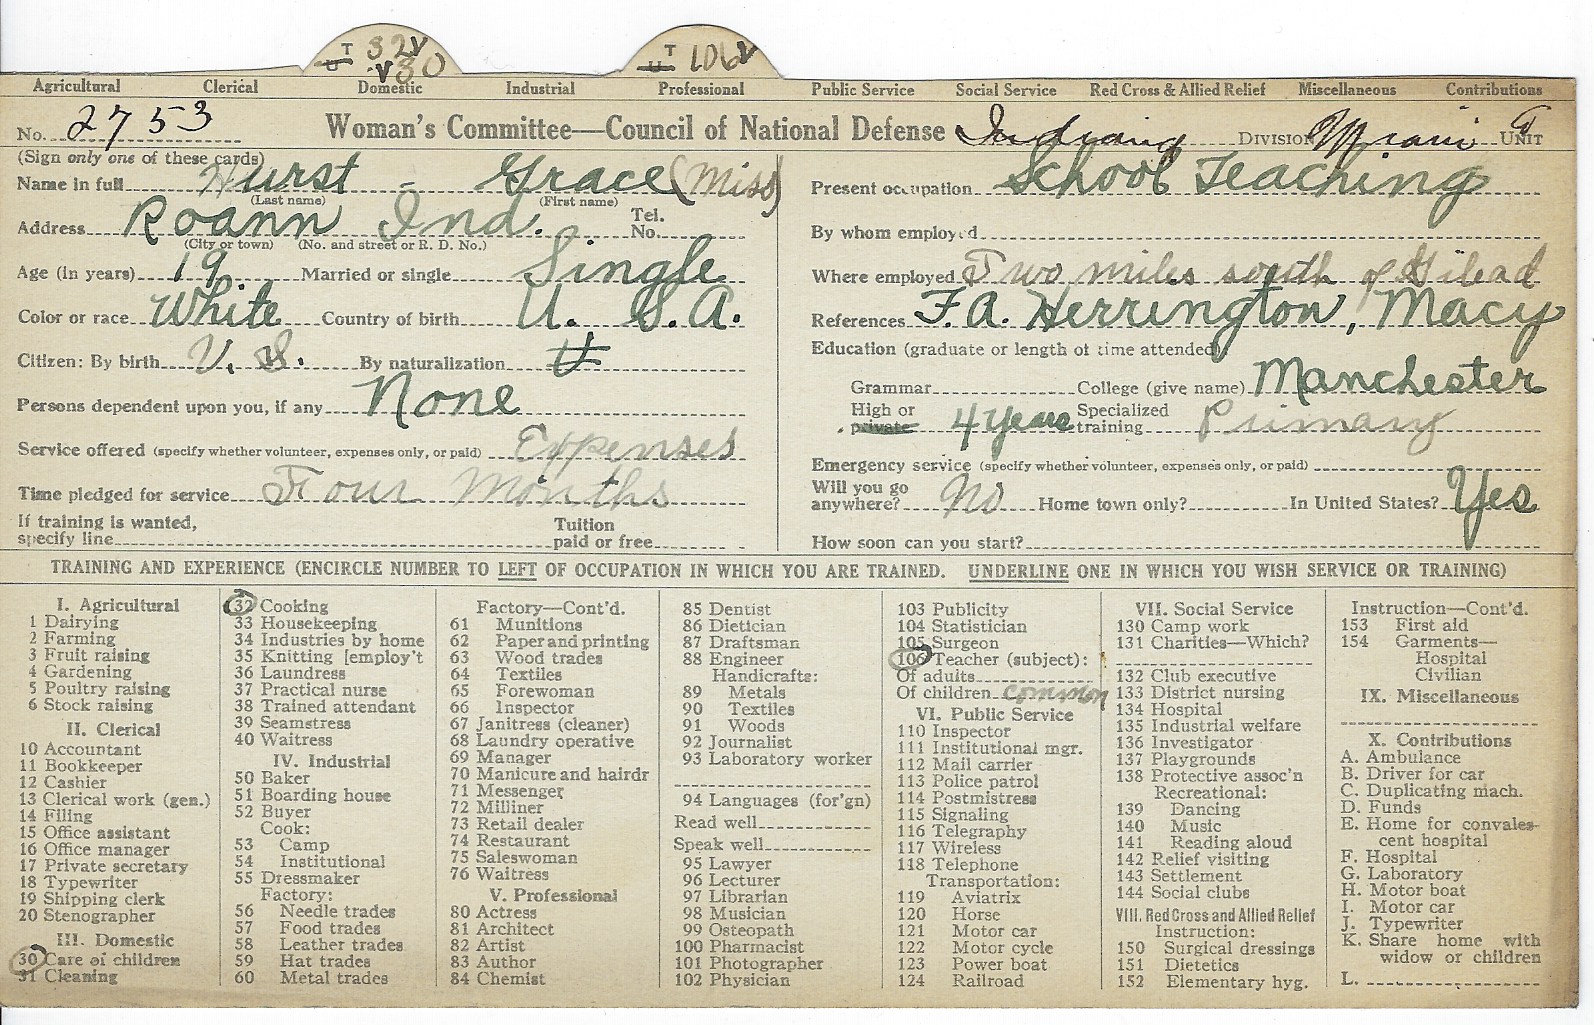 T 32 V T 106 V
U V 30 U
Agricultural Clerical Domestic Industrial Professional Public Service Social Service Red Cross & Allied Relief Miscellaneous Contributions
No. 2753 Woman's Committee—Council of National Defense Indiana DIVISION Miami UNIT
(Sign only one of these cards)
Name in full Hurst - Grace (Miss)
(Last name) (First name)
Address Roann Ind. Tel. No.
(City or town) (No. and street or R. D. No.)
Age (in years) 19 Married or single Single
Color or race White Country of birth U. S. A.
Citizen: By birth U. S. By naturalization
Persons dependent upon you, if any None
Service offered (specify whether volunteer, expenses only, or paid) Expenses
Time pledged for service Four Months
If training is wanted, specify line Tuition paid or free
Present occupation School Teaching
By whom employed
Where employed Two miles south of Gilead
References F. A. Herrington, Macy
Education (graduate or length of time attended):
Grammar College (give name) Manchester
High or private 4 years Specialized training Primary
Emergency service (specify whether volunteer, expenses only, or paid)
Will you go anywhere? No Home town only? In United States? Yes
How soon can you start?
TRAINING AND EXPERIENCE (ENCIRCLE NUMBER TO LEFT OF OCCUPATION IN WHICH YOU ARE TRAINED. UNDERLINE ONE IN WHICH YOU WISH SERVICE OR TRAINING)
I. Agricultural
1 Dairying
2 Farming
3 Fruit raising
4 Gardening
5 Poultry raising
6 Stock raising
II. Clerical
10 Accountant
11 Bookkeeper
12 Cashier
13 Clerical work (gen.)
14 Filing
15 Office assistant
16 Office manager
17 Private secretary
18 Typewriter
19 Shipping clerk
20 Stenographer
III. Domestic
30 Care of children
31 Cleaning
32 Cooking
33 Housekeeping
34 Industries by home
35 Knitting [employ't
36 Laundress
37 Practical nurse
38 Trained attendant
39 Seamstress
40 Waitress
IV. Industrial
50 Baker
51 Boarding house
52 Buyer
Cook:
53 Camp
54 Institutional
55 Dressmaker
Factory:
56 Needle trades
57 Food trades
58 Leather trades
59 Hat trades
60 Metal trades
Factory—Cont'd.
61 Munitions
62 Paper and printing
63 Wood trades
64 Textiles
65 Forewoman
66 Inspector
67 Janitress (cleaner)
68 Laundry operative
69 Manager
70 Manicure and hairdr
71 Messenger
72 Milliner
73 Retail dealer
74 Restaurant
75 Saleswoman
76 Waitress
V. Professional
80 Actress
81 Architect
82 Artist
83 Author
84 Chemist
85 Dentist
86 Dietician
87 Draftsman
88 Engineer
Handicrafts:
89 Metals
90 Textiles
91 Woods
92 Journalist
93 Laboratory worker
94 Languages (for'gn)
Read well
Speak well
95 Lawyer
96 Lecturer
97 Librarian
98 Musician
99 Osteopath
100 Pharmacist
101 Photographer
102 Physician
103 Publicity
104 Statistician
105 Surgeon
106 Teacher (subject):
Of adults
Of children common
VI. Public Service
110 Inspector
111 Institutional mgr.
112 Mail carrier
113 Police patrol
114 Postmistress
115 Signaling
116 Telegraphy
117 Wireless
118 Telephone
Transportation:
119 Aviatrix
120 Horse
121 Motor car
122 Motor cycle
123 Power boat
124 Railroad
VII. Social Service
130 Camp work
131 Charities—Which?
132 Club executive
133 District nursing
134 Hospital
135 Industrial welfare
136 Investigator
137 Playgrounds
138 Protective assoc'n
Recreational:
139 Dancing
140 Music
141 Reading aloud
142 Relief visiting
143 Settlement
144 Social clubs
VIII. Red Cross and Allied Relief
Instruction:
150 Surgical dressings
151 Dietetics
152 Elementary hyg.
Instruction—Cont'd.
153 First aid
154 Garments—
Hospital
Civilian
IX. Miscellaneous
X. Contributions
A. Ambulance
B. Driver for car
C. Duplicating mach.
D. Funds
E. Home for convales-
cent hospital
F. Hospital
G. Laboratory
H. Motor boat
I. Motor car
J. Typewriter
K. Share home with
widow or children
L.